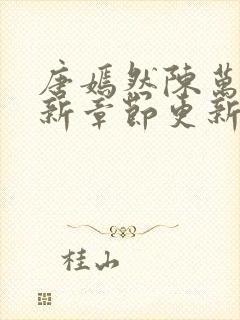 唐嫣然陳萬
新章節更新
桂山